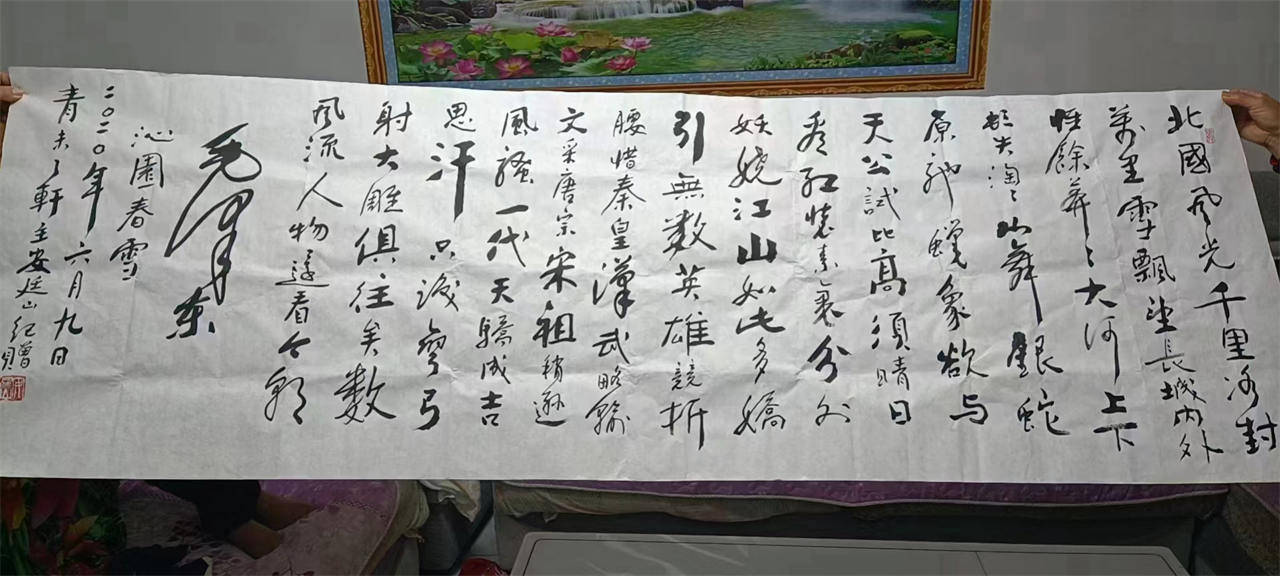 北國风光千里冰封
萬里雪飄望長城内外
惟餘莽〻大河上下
頓失滔〻山舞銀蛇
原馳蠟象欲与
天公試比高須晴日
看红裝素裹分外
妖娆江山如此多嬌
引無数英雄競折
腰惜秦皇漢武略輸
文采唐宗宋祖稍遜
風騷一代天驕成吉
思汗只识彎弓
射大雕俱往矣数
風流人物還看今朝
毛泽東
沁園春雪
二〇二〇年六月九日
青未了軒主安廷山纪赠